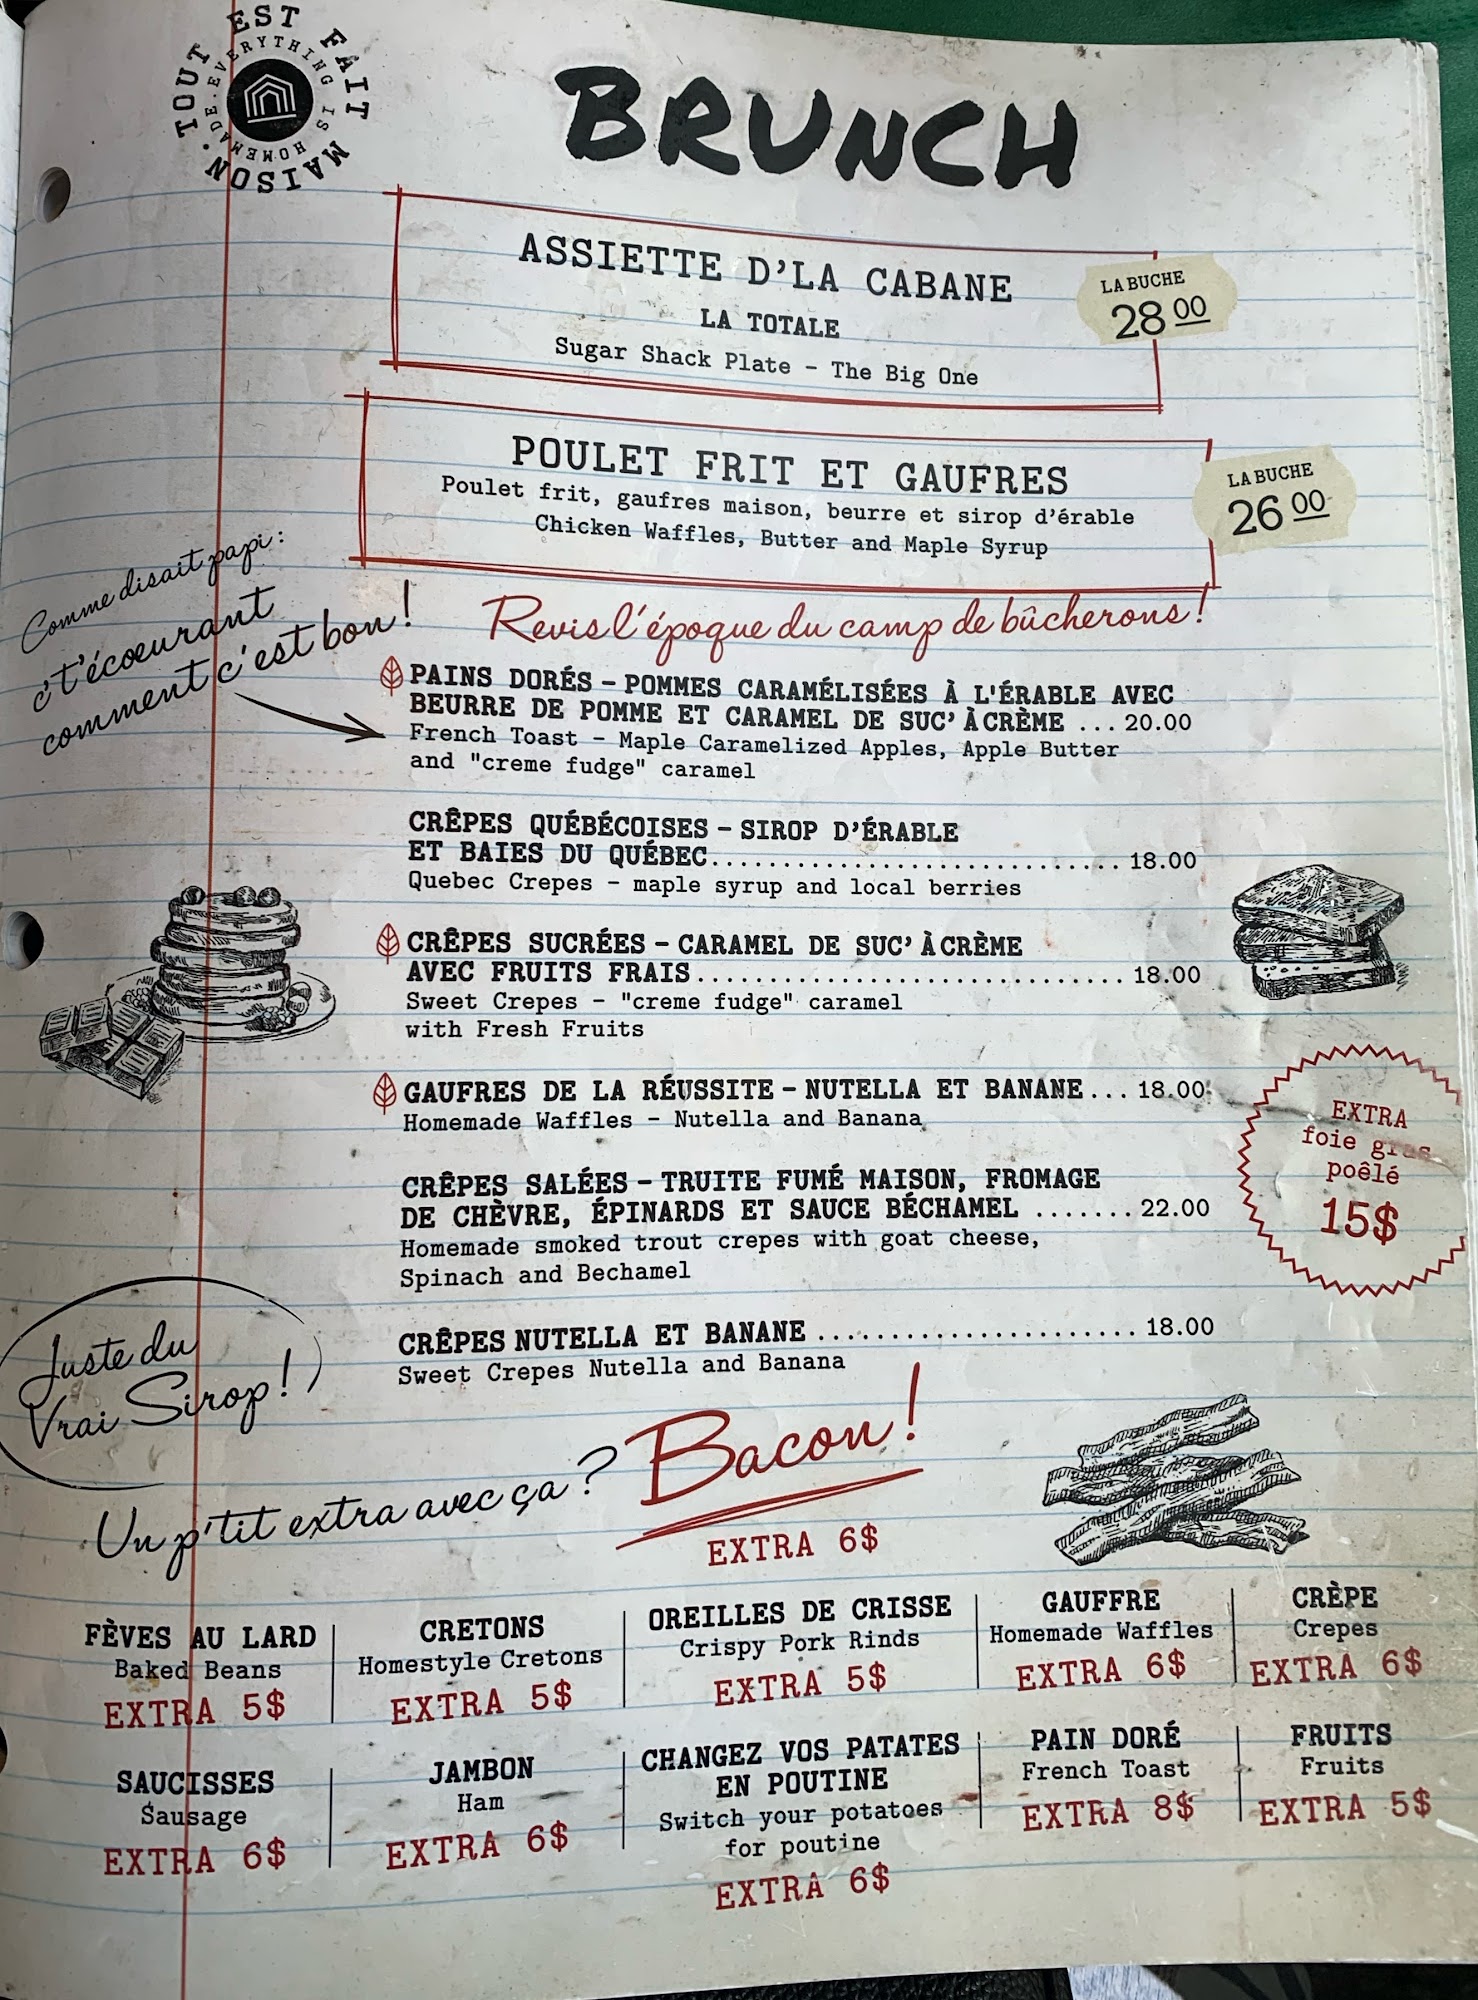 TOUT EST FAIT MAISON.
EVERYTHING IS HOMEMADE.
BRUNCH
ASSIETTE D'LA CABANE
LA TOTALE
Sugar Shack Plate - The Big One
LA BUCHE
28 00
POULET FRIT ET GAUFRES
Poulet frit, gaufres maison, beurre et sirop d'érable
Chicken Waffles, Butter and Maple Syrup
LA BUCHE
26 00
Comme disait papi:
c't'écoeurant
comment c'est bon!
Revis l'époque du camp de bûcherons!
PAINS DORÉS - POMMES CARAMÉLISÉES À L'ÉRABLE AVEC
BEURRE DE POMME ET CARAMEL DE SUC' À CRÈME ... 20.00
French Toast - Maple Caramelized Apples, Apple Butter
and "creme fudge" caramel
CRÊPES QUÉBÉCOISES - SIROP D'ÉRABLE
ET BAIES DU QUÉBEC............................ 18.00
Quebec Crepes - maple syrup and local berries
CRÊPES SUCRÉES - CARAMEL DE SUC' À CRÈME
AVEC FRUITS FRAIS.............................. 18.00
Sweet Crepes - "creme fudge" caramel
with Fresh Fruits
GAUFRES DE LA RÉUSSITE - NUTELLA ET BANANE... 18.00
Homemade Waffles - Nutella and Banana
CRÊPES SALÉES - TRUITE FUMÉ MAISON, FROMAGE
DE CHÈVRE, ÉPINARDS ET SAUCE BÉCHAMEL ....... 22.00
Homemade smoked trout crepes with goat cheese,
Spinach and Bechamel
CRÊPES NUTELLA ET BANANE ...................... 18.00
Sweet Crepes Nutella and Banana
EXTRA
foie gras
poêlé
15$
Juste du
Vrai Sirop!
Un p'tit extra avec ça? Bacon!
EXTRA 6$
FÈVES AU LARD
Baked Beans
EXTRA 5$
CRETONS
Homestyle Cretons
EXTRA 5$
OREILLES DE CRISSE
Crispy Pork Rinds
EXTRA 5$
GAUFFRE
Homemade Waffles
EXTRA 6$
CRÈPE
Crepes
EXTRA 6$
SAUCISSES
Sausage
EXTRA 6$
JAMBON
Ham
EXTRA 6$
CHANGEZ VOS PATATES
EN POUTINE
Switch your potatoes
for poutine
EXTRA 6$
PAIN DORÉ
French Toast
EXTRA 8$
FRUITS
Fruits
EXTRA 5$